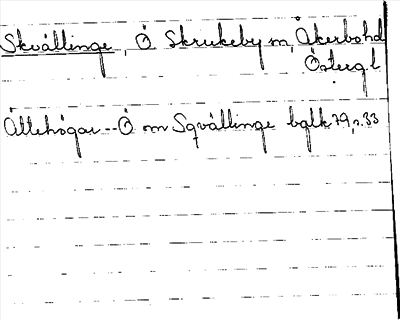 Skvällinge, Ö Skrukeby sn, Åkerbo hd
Östergl
Ållehögar -- Ö om Sqvällinge bglk 79, n. 33